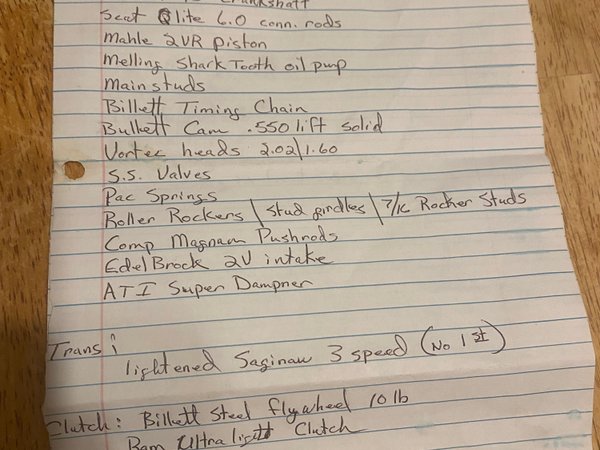 Crankshaft
Scat Qlite 6.0 conn. rods
Mahle 2VR piston
Melling Shark Tooth oil pump
Main studs
Billett Timing Chain
Bullett Cam .550 lift solid
Vortec heads 2.02/1.60
S.S. Valves
Pac Springs
Roller Rockers \ Stud girdles \ 7/16 Rocker Studs
Comp Magnam Pushrods
EdelBrock 2V intake
ATI Super Dampner
Trans:
lightened Saginaw 3 speed (No 1st)
Clutch: Billett Steel flywheel 10 lb
Ram Ultra light Clutch